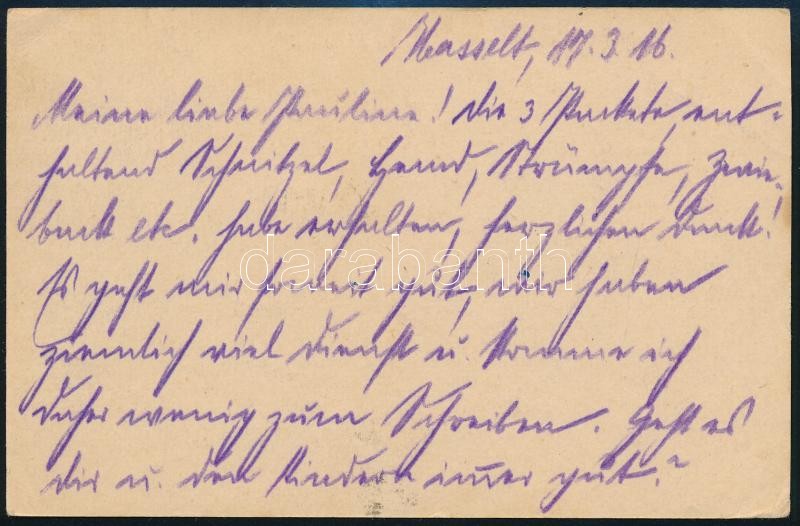 Hasselt, 17.3.16.
Meine liebe Pauline! Die 3 Packete, ent-
haltend Schnitzel, Hemd, Strümpfe, Zwie-
back etc. habe erhalten, herzlichen Dank!
Es geht mir soweit gut, wir haben
ziemlich viel Dienst u. komme ich
daher wenig zum Schreiben. Geht es
dir u. den Kindern immer gut?
darabanth